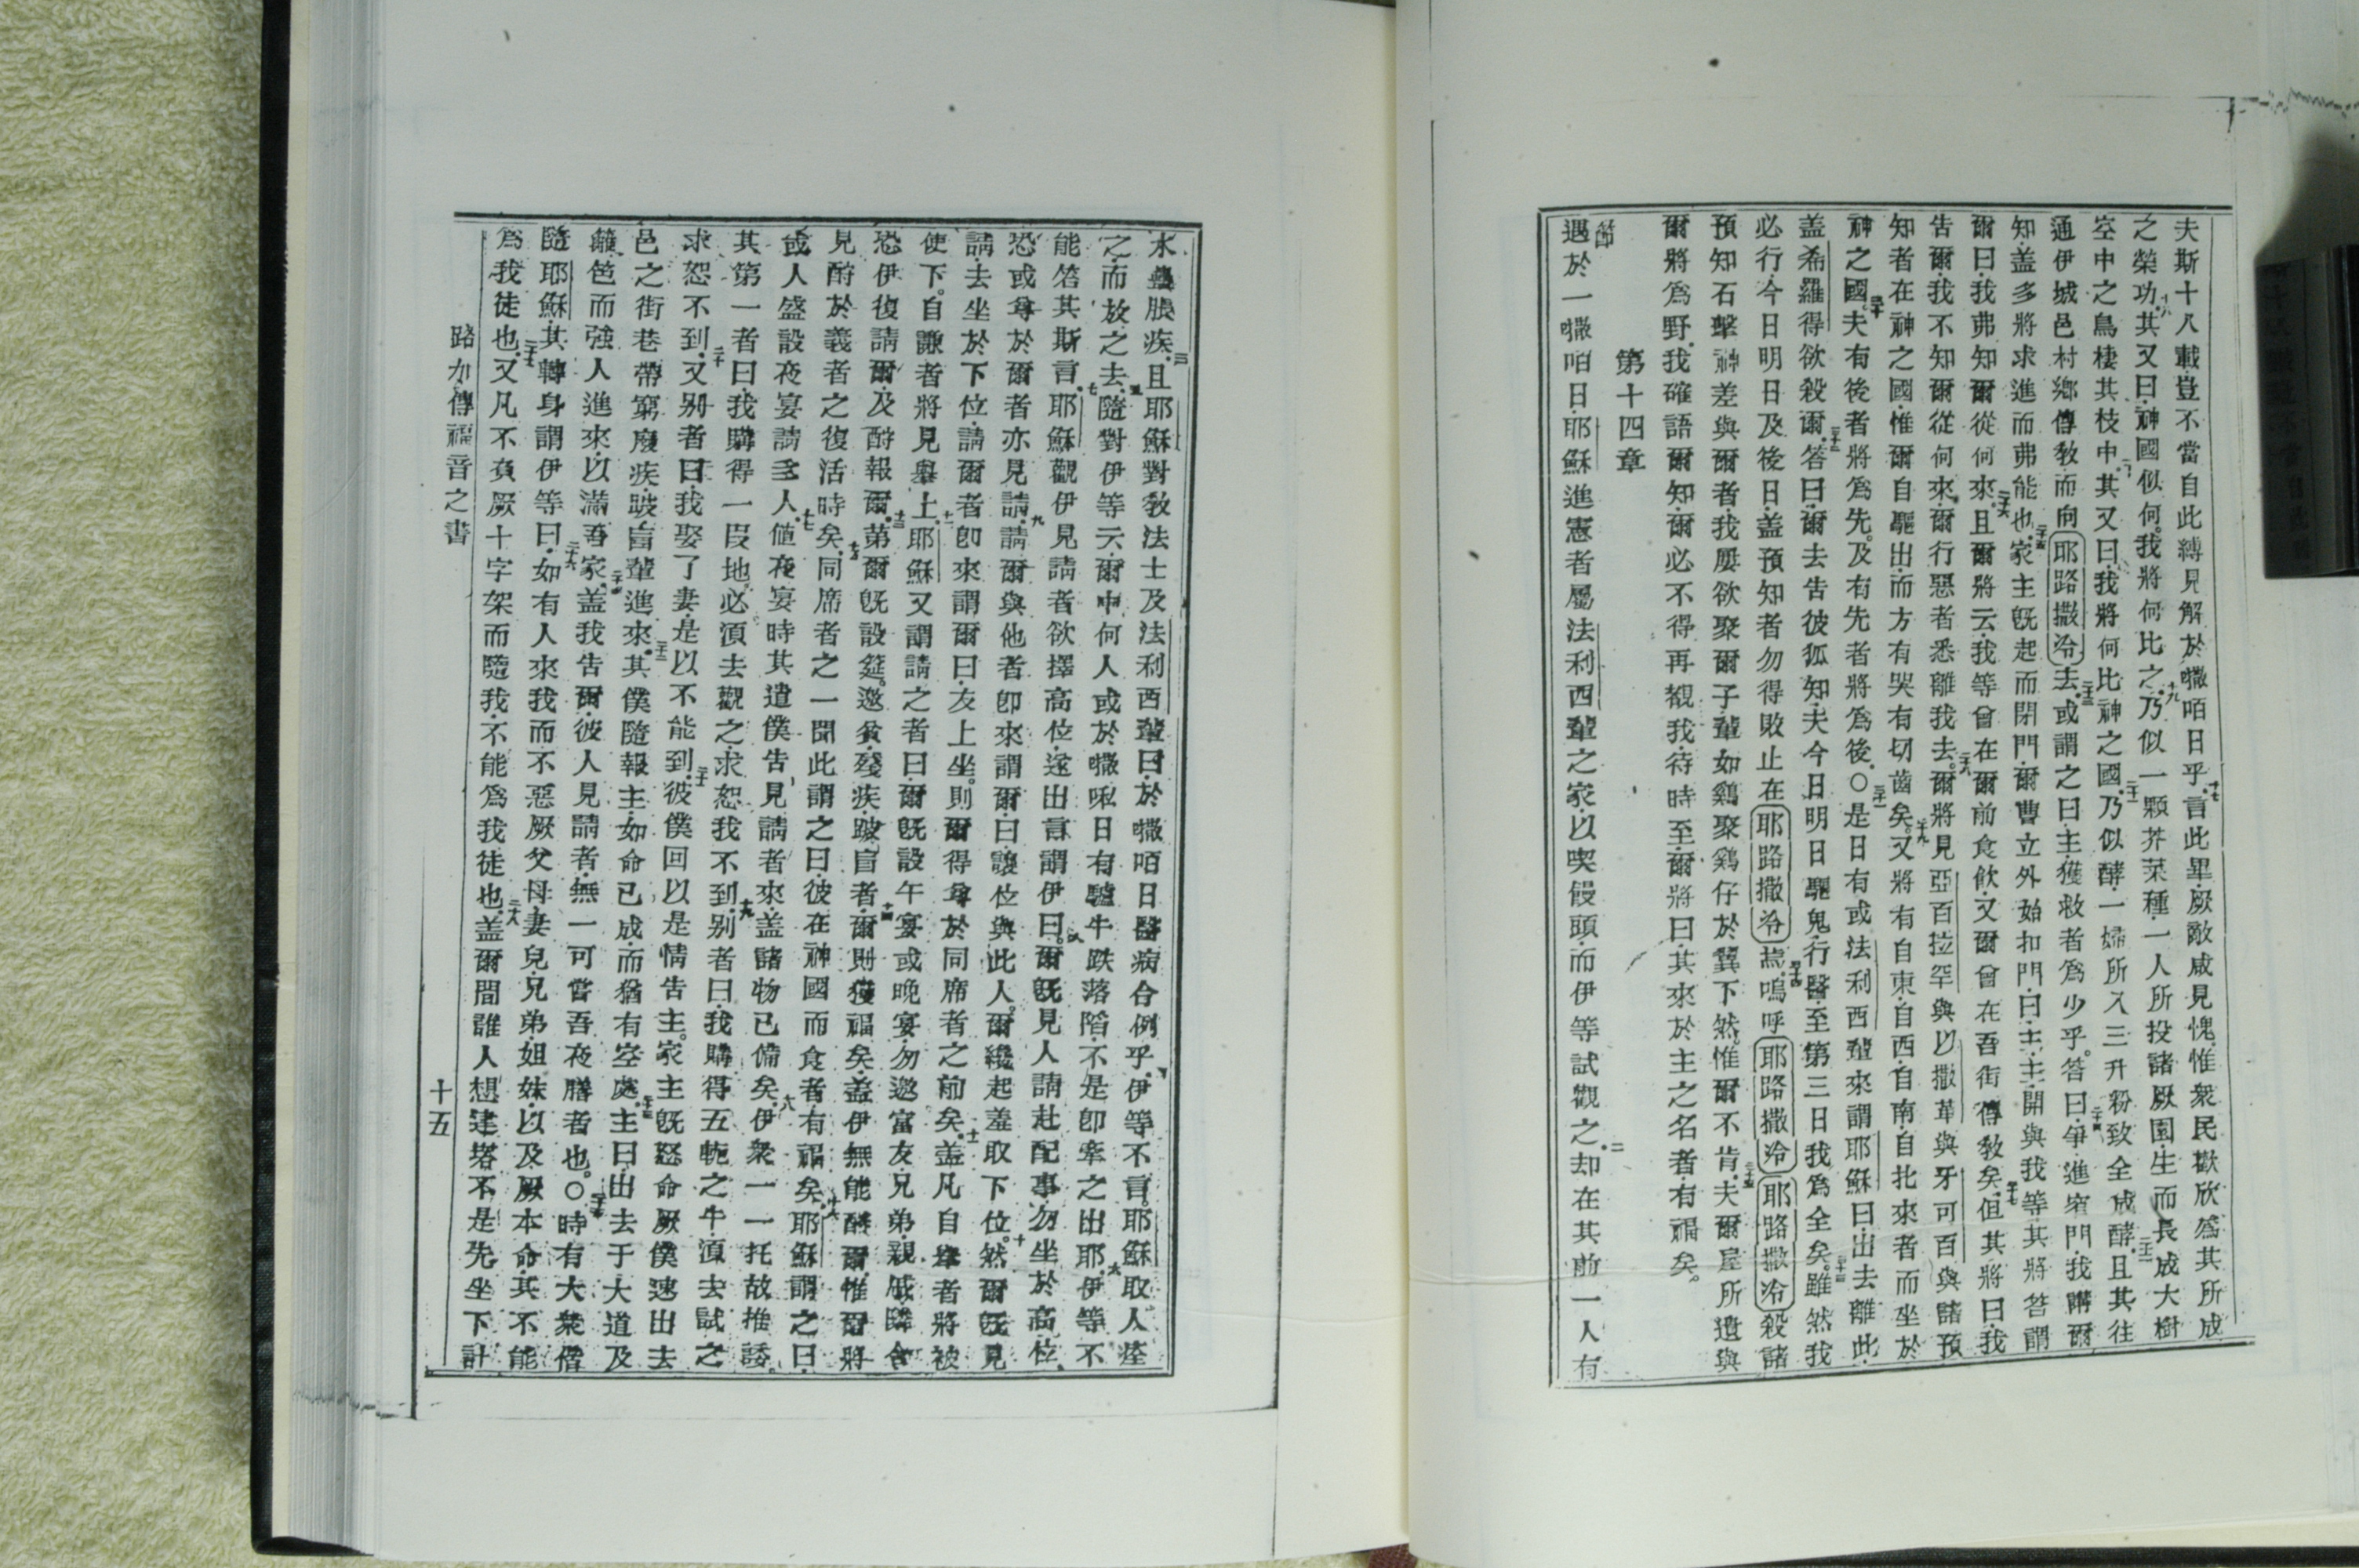 夫斯十八載豈不當自此縛見解於㘔咟日乎十七言此畢厥敵咸見愧惟衆民歡欣為其所成
之榮功十八其又曰神國似何我將何比之十九乃似一顆芥菜種一人所投諸厥園生而長成大樹
空中之鳥棲其枝中二十其又曰我將何比神之國二十一乃似酵一婦所入三升粉致全成酵二十二且其往
通伊城邑村鄉傳教而向耶路撒冷去二十三或謂之曰主獲救者為少乎答曰二十四爭進窄門我講爾
知蓋多將求進而弗能也二十五家主既起而閉門爾曹立外始扣門曰主主開與我等其將答謂
爾曰我弗知爾從何來二十六且爾將云我等曾在爾前食飲又爾曾在吾街傳教矣二十七但其將曰我
告爾我不知爾從何來爾行惡者悉離我去二十八爾將見亞百拉罕與以撒革與牙可百與諸預
知者在神之國惟爾自驅出而方有哭有切齒矣二十九又將有自東自西自南自北來者而坐於
神之國三十夫有後者將為先及有先者將為後○三十一是日有或法利西輩來謂耶穌曰出去離此
蓋希羅得欲殺爾三十二答曰爾去告彼狐知夫今日明日驅鬼行醫至第三日我為全矣三十三雖然我
必行今日明日及後日蓋預知者勿得敗止在耶路撒冷焉三十四嗚呼耶路撒冷耶路撒冷殺諸
預知石擊神差與爾者我屢欲聚爾子輩如鷄聚鷄仔於翼下然惟爾不肯三十五夫爾屋所遺與
爾將為野我確語爾知爾必不得再覩我待時至爾將曰其來於主之名者有福矣
第十四章
節
遇於一㘔咟日耶穌進憲者屬法利西輩之家以喫饅頭而伊等試觀之二却在其前一人有
水蠱脹疾三且耶穌對教法士及法利西輩曰於㘔咟日醫病合例乎四伊等不言耶穌取人痊
之而放之去五隨對伊等云爾中何人或於㘔咟日有驢牛跌落陷不是卽牽之出耶六伊等不
能答其斯言七耶穌觀伊見請者欲擇高位遂出言謂伊曰八爾既見人請赴配事勿坐於高位
恐或尊於爾者亦見請九請爾與他者卽來謂爾曰讓位與此人爾纔起羞取下位十然爾既見
請去坐於下位請爾者卽來謂爾曰友上坐則爾得尊於同席者之前矣十一蓋凡自舉者將被
使下自謙者將見舉上十二耶穌又謂請之者曰爾既設午宴或晚宴勿邀富友兄弟親戚隣舍
恐伊復請爾及酧報爾十三苐爾既設筵邀貧殘疾跛盲者十四爾則獲福矣蓋伊無能酧爾惟爾將
見酧於義者之復活時矣十五同席者之一聞此謂之曰彼在神國而食者有福矣十六耶穌謂之曰
或人盛設夜宴請多人十七値夜宴時其遣僕告見請者來蓋諸物已備矣十八伊衆一一托故推諉
其第一者曰我購得一叚地必湏去觀之求恕我不到十九別者曰我購得五軛之牛湏去試之
求恕不到二十又別者曰我娶了妻是以不能到二十一彼僕回以是情告主家主既怒命厥僕速出去
邑之街巷帶窮廢疾跛盲輩進來二十二其僕隨報主如命已成而猶有空處二十三主曰出去于大道及
籬笆而強人進來以滿吾家二十四蓋我告爾彼人見請者無一可嘗吾夜膳者也○二十五時有大衆偕
隨耶穌其轉身謂伊等曰二十六如有人來我而不惡厥父母妻兒兄弟姐妹以及厥本命其不能
為我徒也二十七又凡不負厥十字架而隨我不能為我徒也二十八蓋爾間誰人想建塔不是先坐下計
路加傳福音之書
十五